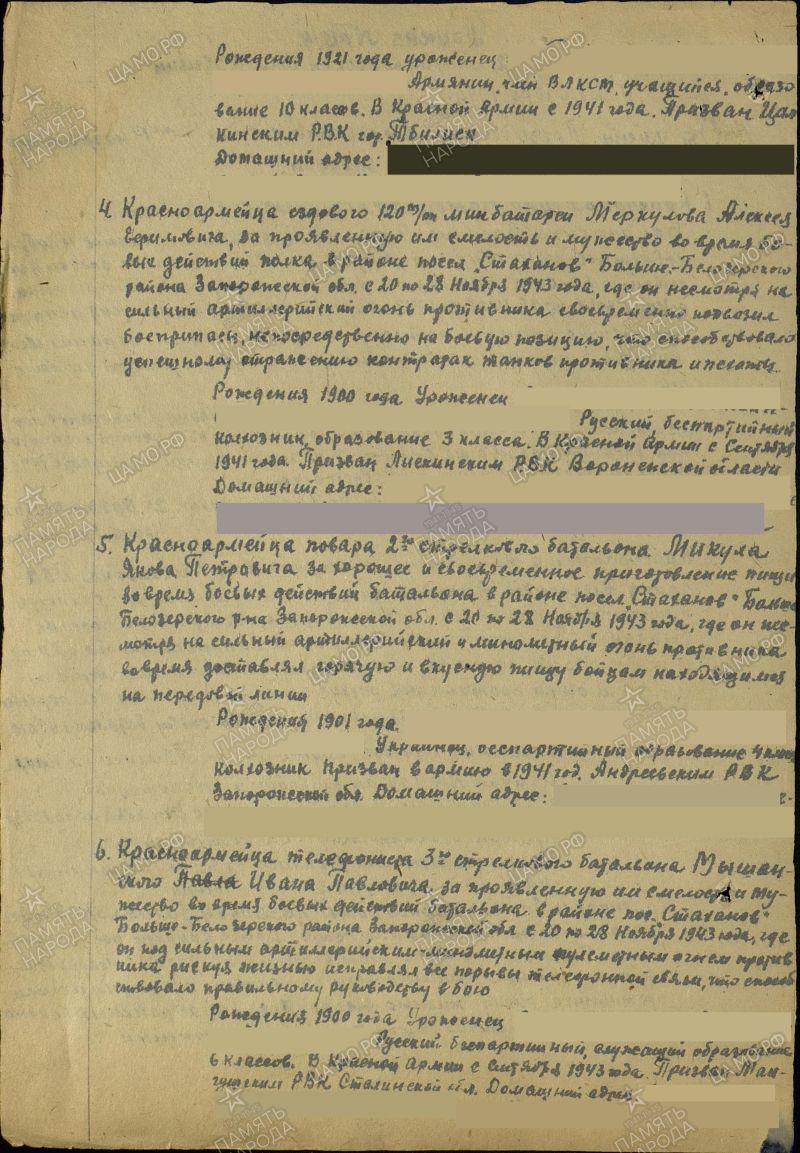 Рождения 1921 года уроженец
Армянин, член ВЛКСМ, учащийся, образо
вание 10 классов. В Красной Армии с 1941 года. Призван
кинским РВК гор. Тбилиси
Домашний адрес:
4. Красноармейца ездового 120 м/м минбатареи Меркулова Алексея
Ефимовича, за проявленную им смелость и мужество во время бо-
вых действий полка в районе посел. "Стаханов" Больше-Белозерского
района Запорожской обл. с 20 по 28 Ноября 1943 года, где он несмотря на
сильный артиллерийский огонь противника своевременно подвозил
боеприпасы, непосредственно на боевую позицию, что способствовало
успешному отражению контратак танков противника и пехоты.
Рождения 1900 года Уроженец
Русский, беспартийный
колхозник, образование 3 класса. В Красной Армии с Сентября
1941 года. Призван Лискинским РВК Воронежской области
Домашний адрес:
5. Красноармейца повара 2го стрелкового батальона Микула
Якова Петровича за хорошее и своевременное приготовление пищи
во время боевых действий батальона в районе посел. "Стаханов" Больше
Белозерского р-на Запорожской обл. с 20 по 28 Ноября 1943 года, где он нес-
мотря на сильный артиллерийский и минометный огонь противника
вовремя доставлял горячую и вкусную пищу бойцам находящимся
на передовой линии
Рождения 1901 года.
Украинец, беспартийный образование 4 класс
колхозник Призван в армию в 1941 год. Андреевским РВК
Запорожской обл. Домашний адрес:
6. Красноармейца телефониста 3го стрелкового батальона Мышан-
ского Павла Ивана Павловича за проявленную им смелость и му-
жество во время боевых действий батальона в районе пос. "Стаханов"
Больше-Белозерского района Запорожской обл с 20 по 28 Ноября 1943 года, где
он под сильным артиллерийским-минометным пулеметным огнем против
ника рискуя жизнью исправлял все порывы телефонной связи, что способ
ствовало правильному руководству в бою
Рождения 1900 года Уроженец
Русский беспартийный, служащий образование
6 классов. В Красной Армии с Сентября 1943 года. Призван Ман-
гушским РВК Сталинской обл. Домашний адрес